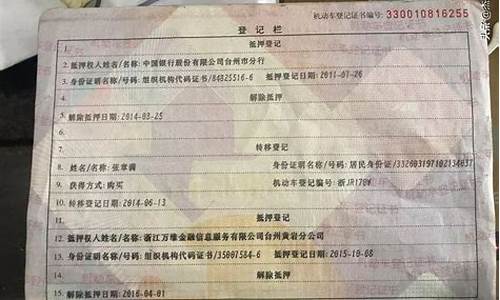 机动车登记证书编号: 330010816255
登记栏
1. 抵押登记
2. 抵押权人姓名/名称: 中国银行股份有限公司台州市分行
3. 身份证明名称/号码: 组织机构代码证书/84825516-6 抵押登记日期: 2011-07-26
4. 解除抵押
5. 解除抵押日期: 2014-03-25
6.
7. 转移登记
8. 姓名/名称: 张章满 身份证明名称/号码: 居民身份证/332603197102134037
9. 获得方式: 购买 机动车登记编号: 浙JR178W
10. 转移登记日期: 2014-06-13
11. 抵押登记
12. 抵押权人姓名/名称: 浙江万维金融信息服务有限公司台州黄岩分公司
13. 身份证明名称/号码: 组织机构代码证书/35007584-6 抵押登记日期: 2015-10-08
14. 解除抵押
15. 解除抵押日期: 2016-04-01